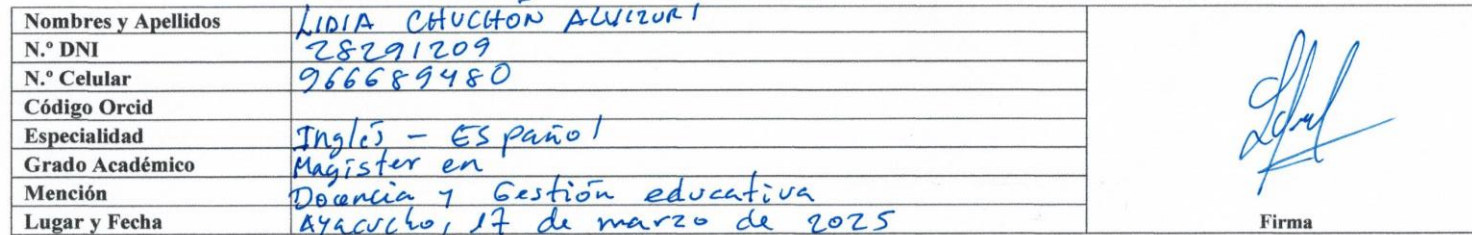 Nombres y Apellidos LIDIA CHUCHÓN ALVIZURI
N.º DNI 28291209
N.º Celular 966689480
Código Orcid
Especialidad Inglés - Español
Grado Académico Magíster en
Mención Docencia y Gestión educativa
Lugar y Fecha Ayacucho, 17 de marzo de 2025
Firma